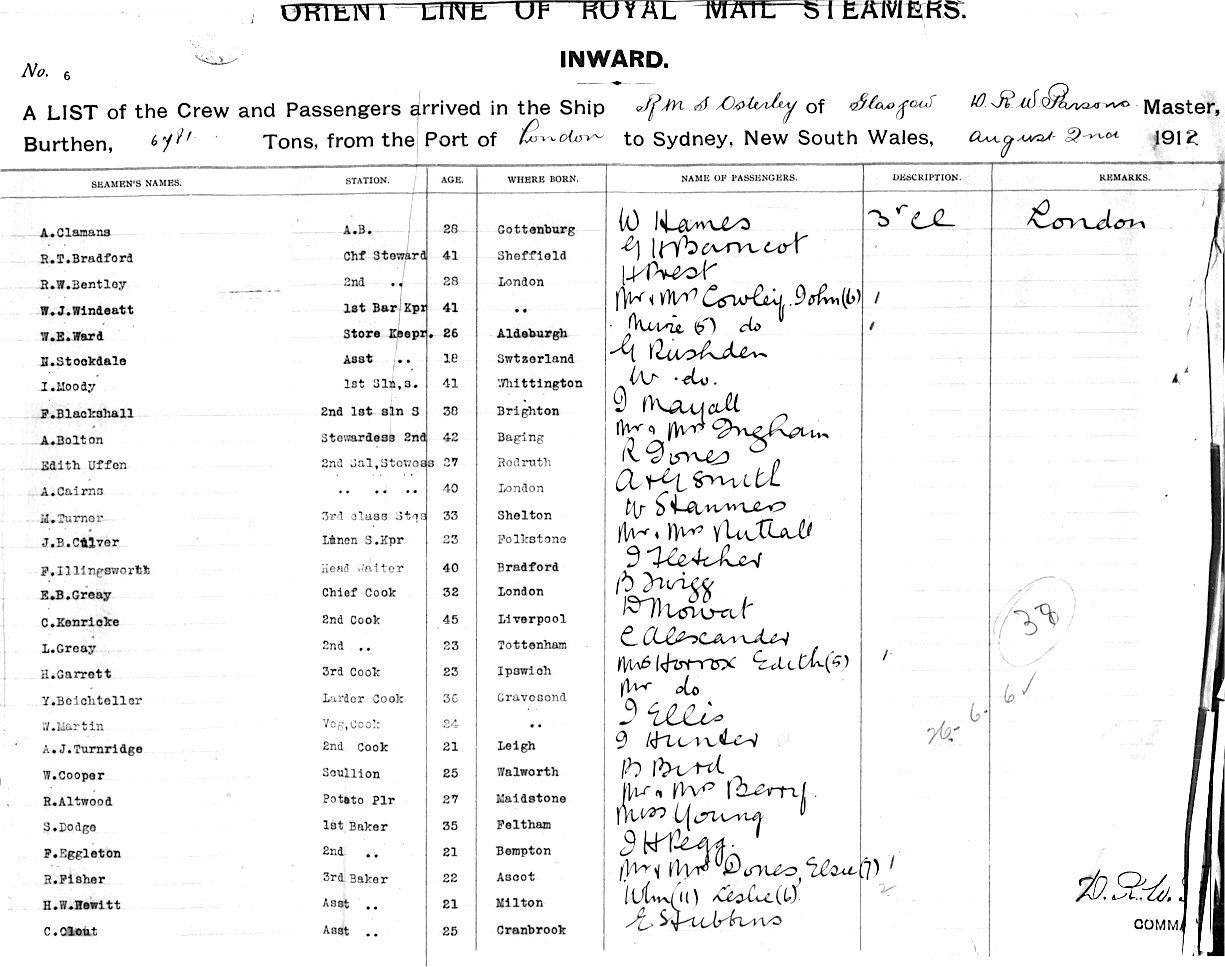 ORIENT LINE OF ROYAL MAIL STEAMERS.
INWARD.
No. 6
A LIST of the Crew and Passengers arrived in the Ship R M S Osterley of Glasgow D. R. W Parsons Master,
Burthen, 6781 Tons, from the Port of London to Sydney, New South Wales, August 2nd 1912
SEAMEN'S NAMES. STATION. AGE. WHERE BORN. NAME OF PASSENGERS. DESCRIPTION. REMARKS.
A.Clamans A.B. 28 Gottenburg W Hames 3r Cl London
R.T.Bradford Chf Steward 41 Sheffield G H Barncot
R.W.Bentley 2nd .. 28 London H Prest
W.J.Windeatt 1st Bar Kpr 41 .. Mr & Mrs Cowley, John (6) 1
W.E.Ward Store Keepr. 26 Aldeburgh (5) do 1
H.Stockdale Asst .. 18 Swtzerland G Rushden
I.Moody 1st Sln,s. 41 Whittington W do.
F.Blackshall 2nd 1st sln S 38 Brighton J Mayall
A.Bolton Stewardess 2nd 42 Baging Mr & Mrs Ingham
Edith Uffen 2nd Sal,Stewess 27 Redruth R Jones
A.Cairns .. .. .. 40 London A & G Smith
M.Turner 3rd class Stqs 33 Shelton W Stanmers
J.B.Culver Linen S.Kpr 23 Folkstone Mr & Mrs Nuttall
F.Illingsworth Head Waiter 40 Bradford J Fletcher
E.B.Greay Chief Cook 32 London B Twigg
C.Kenricke 2nd Cook 45 Liverpool D Mowat
L.Greay 2nd .. 23 Tottenham C Alexander 38
H.Garrett 3rd Cook 23 Ipswich Mrs Horrox Edith (5) 1
Y.Beichteller Larder Cook 36 Gravesend Mr do
W.Martin Veg,Cook 24 .. J Ellis 26. 6. 6 ✓
A.J.Turnridge 2nd Cook 21 Leigh J Hunter
W.Cooper Scullion 25 Walworth B Bird
R.Altwood Potato Plr 27 Maidstone Mr & Mrs Berry.
S.Dodge 1st Baker 35 Feltham Miss Young
F.Eggleton 2nd .. 21 Bempton J H Pegg.
R.Fisher 3rd Baker 22 Ascot Mr & Mrs Dones, Elsie (7) 1
H.W.Hewitt Asst .. 21 Milton Wlm (11) Leslie (6) 2 D. R. W.
C.Clout Asst .. 25 Cranbrook E Stubbins COMMA